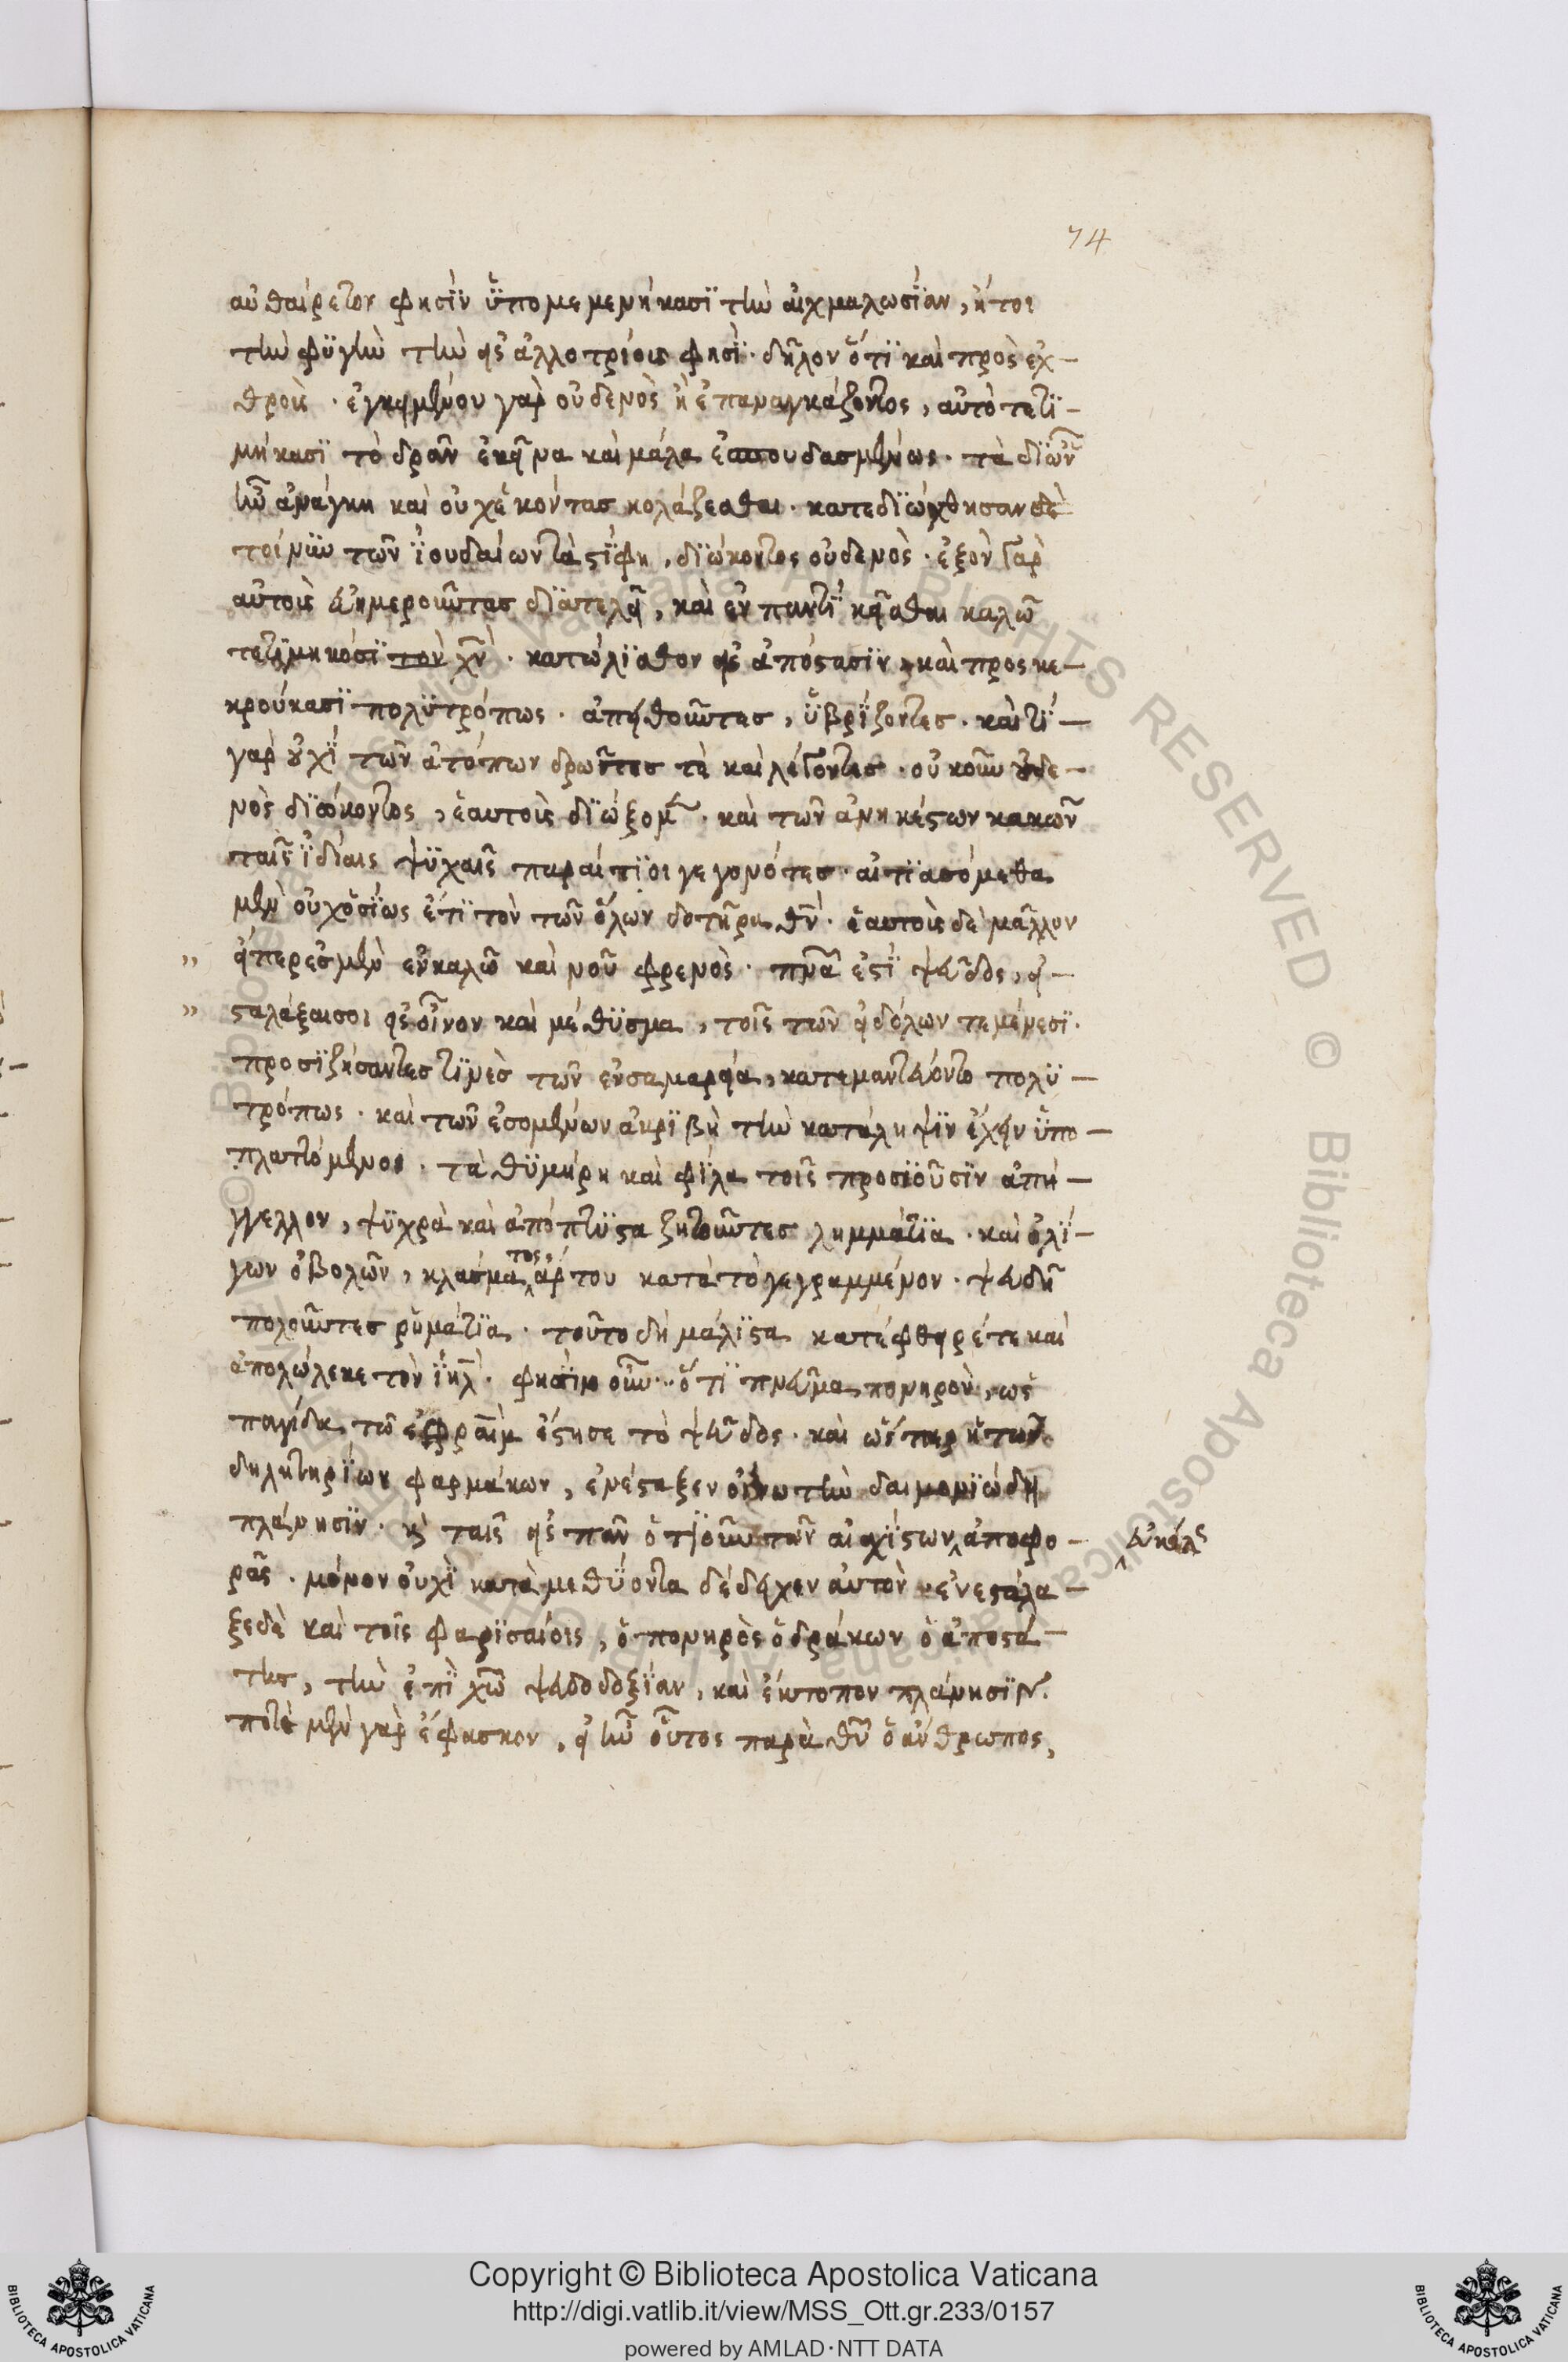 74
αὐθαίρετον φησὶν ὑπομεμενήκασι τὴν αἰχμαλωσίαν, ἤτοι
τὴν φυγὴν τὴν εἰς ἀλλοτρίους φησὶ· δῆλον ὅτι καὶ πρὸς ἐχ–
θρούς· ἐγκειμένου γὰρ οὐδενὸς ἢ ἐπαναγκάζοντος, αὐτὸ τετι–
μήκασι τὸ δρᾶν ἐκεῖνα καὶ μάλα ἐσπουδασμένως· τὰ δι' ὧν
ἦν ἀνάγκη καὶ οὐχ ἑκόντας κολάζεσθαι· κατεδιώχθησαν δὲ
τοίνυν τῶν ἰουδαίων τὰ στίφη, διώκοντος οὐδενὸς· ἐξὸν γὰρ
αὐτοῖς εὐημεροῦντας διατελεῖν, καὶ ἐν παντὶ κεῖσθαι καλῷ
τετιμηκόσι τὸν χν· κατώλισθον εἰς ἀπόστασιν, καὶ προσκε–
κρούκασι πολυτρόπως· ἀπειθοῦντες, ὑβρίζοντες· καὶ τί–
γὰρ οὐχὶ τῶν ἀτόπων δρῶντες τὲ καὶ λέγοντες· οὐκοῦν οὐδε–
νὸς διώκοντος, ἑαυτοὺς διώξομεν· καὶ τῶν ἀνηκέστων κακῶν
ταῖς ἰδίαις ψυχαῖς παραίτιοι γεγονότες· αἰτιασόμεθα
μὲν οὐχ ὁσίως ἔτι τὸν τῶν ὅλων σωτῆρα θν· ἑαυτοὺς δὲ μᾶλλον
" εἴπερ ἐσμὲν ἐν καλῷ καὶ νοῦ φρενὸς· πνα ἐστὶ ψεῦδος, εἰ–
" σταλάξαι σοι εἰς οἶνον καὶ μέθυσμα, τοῖς τῶν εἰδώλων τεμένεσι·
προσιζήσαντες τινὲς τῶν ἐν σαμαρεία, κατεμαντεύοντο πολυ–
τρόπως· καὶ τῶν ἐσομένων ἀκριβῆ τὴν κατάληψιν ἔχειν ὑπο–
πλαττόμενοι· τὰ θυμήρη καὶ φίλα τοῖς προσιοῦσιν ἀπή–
γγελλον, ψυχρὰ καὶ ἀπόπτυστα ζητοῦντες λημμάτια· καὶ ὀλί–
γων ὀβολῶν, κλάσματος, ἄρτου κατὰ τὸ γεγραμμένον· ψευδῆ
πολοῦντες ῥημάτια· τοῦτο δὴ μάλιστα κατέφθειρέ τε καὶ
ἀπολώλεκε τὸν ιηλ· φησὶν οὖν· ὅτι πνεῦμα πονηρὸν, ὡς
παγίδα τῷ ἐφραῒμ ἔστησε τὸ ψεῦδος· καὶ ὥσπερ τι τῶν
δηλητηρίων φαρμάκων, ἐνέσταξεν οἴνω τὴν δαιμονιώδη
πλάνησιν· καὶ ταῖς εἰς πᾶν ὁτιοῦν τῶν αἰσχίστων ἀποφο–
εὐκόλως
ρᾶς· μόνον οὐχὶ καταμεθύοντα δέδειχεν αὐτὸν· ἐνεστάλα–
ξε δὲ καὶ τοῖς φαρισαίοις, ὁ πονηρὸς ὁ δράκων ὁ ἀποστά–
της, τὴν ἐπὶ χω ψευδοδοξίαν, καὶ ἔκτοπον πλάνησιν.
ποτὲ μὲν γὰρ ἔφασκον, εἰ ἦν οὗτος παρὰ θυ ὁ ἄνθρωπος,
Copyright © Biblioteca Apostolica Vaticana
http://digi.vatlib.it/view/MSS_Ott.gr.233/0157
powered by AMLAD·NTT DATA